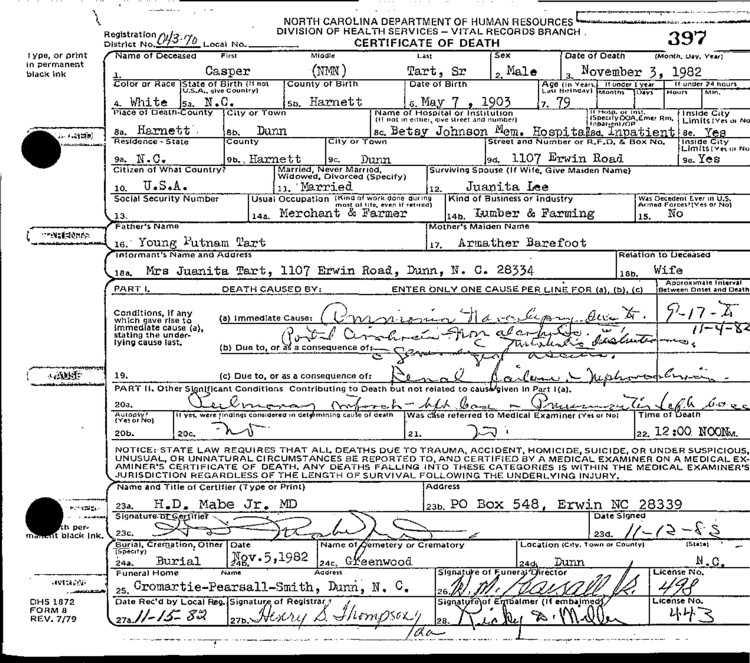 NORTH CAROLINA DEPARTMENT OF HUMAN RESOURCES
DIVISION OF HEALTH SERVICES – VITAL RECORDS BRANCH
Registration District No. 043-70 Local No.
CERTIFICATE OF DEATH
397
Type, or print in permanent black ink
Name of Deceased First Middle Last Sex Date of Death (Month, Day, Year)
1. Casper (NMN) Tart, Sr 2. Male 3. November 3, 1982
Color or Race State of Birth (If not U.S.A., give Country) County of Birth Date of Birth Age (In Years, Last Birthday) If under 1 year Months Days If under 24 hours Hours Min.
4. White 5a. N.C. 5b. Harnett 6. May 7, 1903 7. 79
Place of Death-County City or Town Name of Hospital or Institution (If not in either, give street and number) If Hosp. or Inst. (Specify DOA, Emer Rm, Inpatient/OP Inside City Limits? (Yes or No
8a. Harnett 8b. Dunn 8c. Betsy Johnson Mem. Hospital 8d. Inpatient 8e. Yes
Residence - State County City or Town Street and Number or R.F.D. & Box No. Inside City Limits? (Yes or No
9a. N.C. 9b. Harnett 9c. Dunn 9d. 1107 Erwin Road 9e. Yes
Citizen of What Country? Married, Never Married, Widowed, Divorced (Specify) Surviving Spouse (If Wife, Give Maiden Name)
10. U.S.A. 11. Married 12. Juanita Lee
Social Security Number Usual Occupation (Kind of work done during most of life, even if retired) Kind of Business or Industry Was Decedent Ever in U.S. Armed Forces? (Yes or No)
13. 14a. Merchant & Farmer 14b. Lumber & Farming 15. No
Father's Name Mother's Maiden Name
16. Young Putnam Tart 17. Armather Barefoot
Informant's Name and Address Relation to Deceased
18a. Mrs Juanita Tart, 1107 Erwin Road, Dunn, N. C. 28334 18b. Wife
PART I. DEATH CAUSED BY: ENTER ONLY ONE CAUSE PER LINE FOR (a), (b), (c) Approximate Interval Between Onset and Death
Conditions, if any which gave rise to immediate cause (a), stating the underlying cause last.
(a) Immediate Cause: 9-17-
11-4-82
(b) Due to, or as a consequence of:
19. (c) Due to, or as a consequence of: Renal failure
CAUSE
PART II. Other Significant Conditions Contributing to Death but not related to cause given in Part I(a).
20a. Pulmonary
Autopsy? (Yes or No) If yes, were findings considered in determining cause of death Was case referred to Medical Examiner (Yes or No) Time of Death
20b. 20c. 21. 22. 12:00 NOON M.
NOTICE: STATE LAW REQUIRES THAT ALL DEATHS DUE TO TRAUMA, ACCIDENT, HOMICIDE, SUICIDE, OR UNDER SUSPICIOUS,
UNUSUAL, OR UNNATURAL CIRCUMSTANCES BE REPORTED TO, AND CERTIFIED BY A MEDICAL EXAMINER ON A MEDICAL EX-
AMINER'S CERTIFICATE OF DEATH. ANY DEATHS FALLING INTO THESE CATEGORIES IS WITHIN THE MEDICAL EXAMINER'S
JURISDICTION REGARDLESS OF THE LENGTH OF SURVIVAL FOLLOWING THE UNDERLYING INJURY.
Name and Title of Certifier (Type or Print) Address
23a. H.D. Mabe Jr. MD 23b. PO Box 548, Erwin NC 28339
Signature of Certifier Date Signed
23c. 23d. 11-12-82
manent black ink.
Burial, Cremation, Other (Specify) Date Name of Cemetery or Crematory Location (City, Town or County) (State)
24a. Burial 24b. Nov.5,1982 24c. Greenwood 24d. Dunn N.C.
Funeral Home Name Address Signature of Funeral Director License No.
25. Cromartie-Pearsall-Smith, Dunn, N. C. 26. W. M. Pearsall Jr. 498
DHS 1872
FORM 8
REV. 7/79
Date Rec'd by Local Reg. Signature of Registrar Signature of Embalmer (If embalmed) License No.
27a. 11-15-82 27b. Henry S. Thompson/da 28. Ricky D. Miller 443